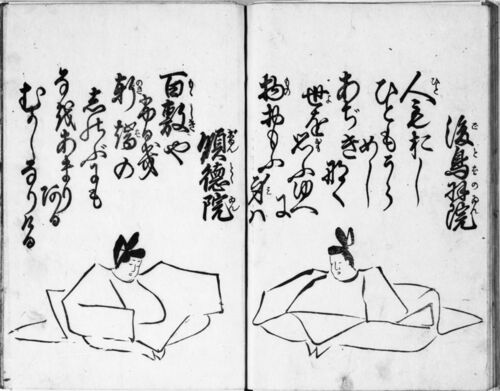 後鳥羽院
人もおし
ひともうら
めし
あぢき那く
世をおもふゆへ
に
物おもふ身ハ
順徳院
百敷や
ふるき
軒端の
しのぶにも
なをあまり
ある
むかしなりける